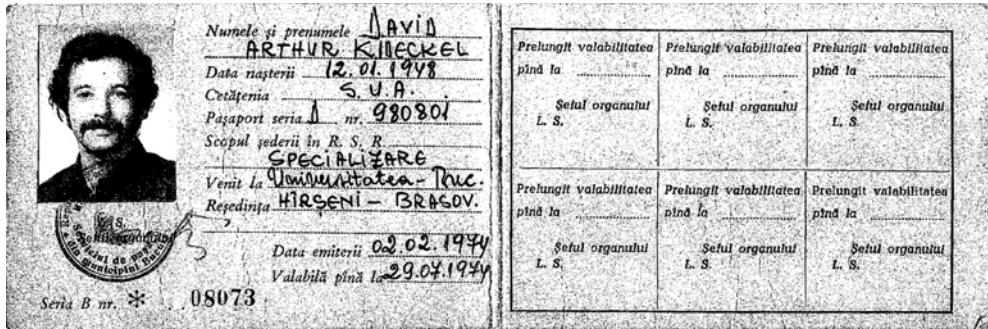 Numele și prenumele DAVID
ARTHUR KIDECKEL
Data nașterii 12.01.1948
Cetățenia S.U.A.
Pașaport seria D nr. 980801
Scopul șederii în R. S. R.
SPECIALIZARE
Venit la Universitatea - Buc.
Reședința HÎRSENI - BRASOV.
Data emiterii 02.02.1974
Valabilă pînă la 29.07.1974
L. S.
Șeful organului
Serviciul de
din municipiul
Seria B nr. * 08073
Prelungit valabilitatea
pînă la
Șeful organului
L. S.
Prelungit valabilitatea
pînă la
Șeful organului
L. S.
Prelungit valabilitatea
pînă la
Șeful organului
L. S.
Prelungit valabilitatea
pînă la
Șeful organului
L. S.
Prelungit valabilitatea
pînă la
Șeful organului
L. S.
Prelungit valabilitatea
pînă la
Șeful organului
L. S.